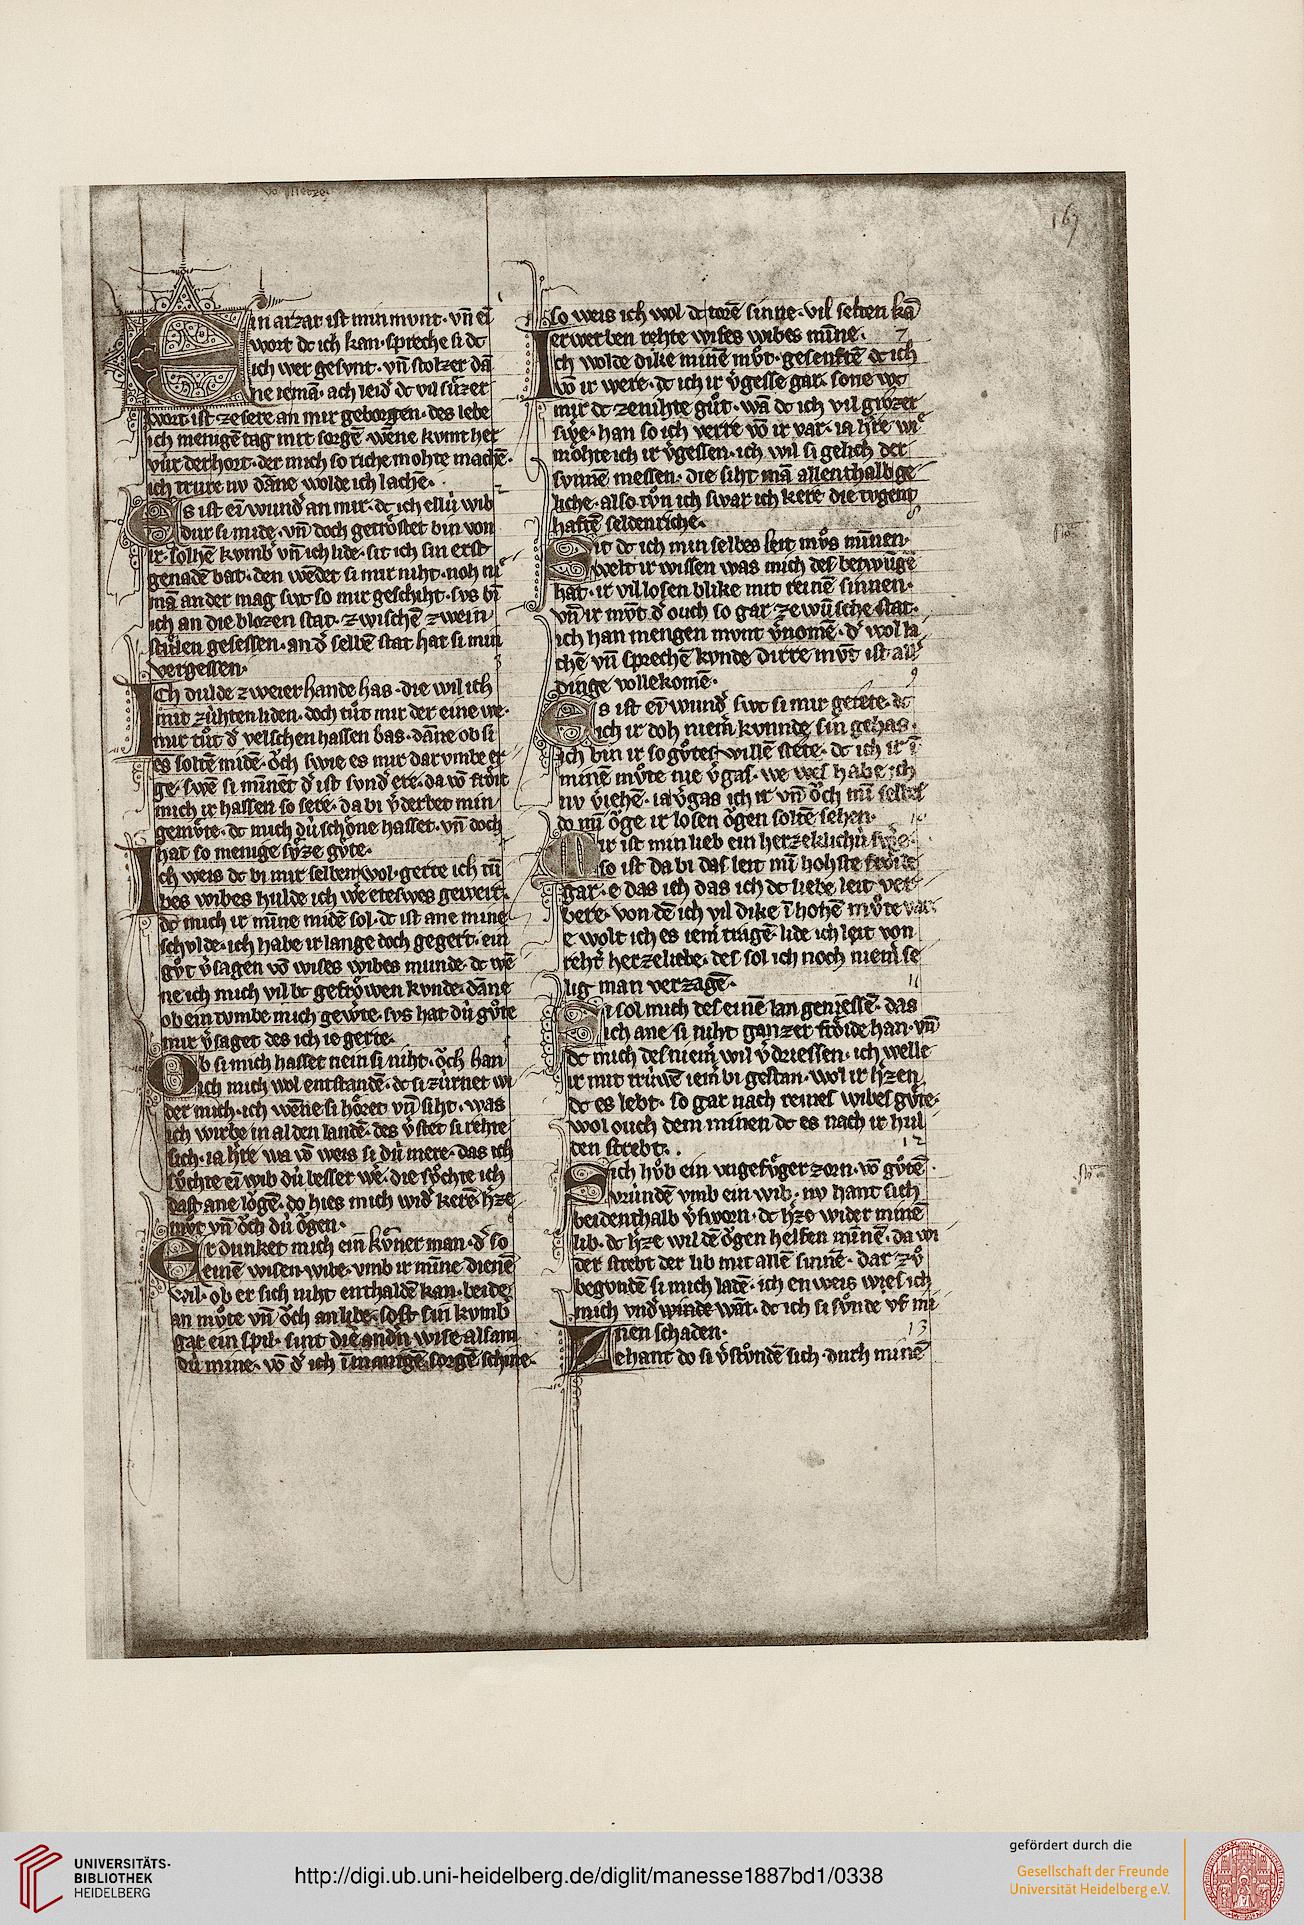 vō Metze.
167
Ein arzat ist min mvnt · vn̄ eī
wort dc ich kan · spreche si dc
ich wer gesvnt · vn̄ stolzer dā
ne iemā · ach leid᷑ dc vil suͤzer
wort ist ze sere an mir geborgen · des lebe
ich menigē tag mit sorgē · wēne kvmt her
vúr der hort · der mich so riche mohte machē ·
ich trure nv dāne wolde ich lache ·
Es ist eī wund᷑ an mir · dc ich ellú wib
dur si mide · vn̄ doch getroͤstet bin von
ir · solhē kvmb᷑ vn̄ ich lide · sit ich sin erst
genadē bat · den wēdet si mir niht · noh nie
mā ander mag swc so mir geschiht · svs bī
ich an die blozen stat · zwischē zwein
stuͤlen gesessen · an d᷑ selbē stat hat si min
vergessen ·
3
Ich dulde zweier hande has · die wil ich
mit zúhten liden · doch tuͦt mir der eine we ·
mir tuͦt d᷑ velschen hassen bas · dāne ob si
es soltē midē · oͮch swie es mir dar vmbe er
ge · swē si mīnet d᷑ ist svnd᷑ ere · da vō froͤit
mich ir hassen so sere · da bi v᷑derbet min
gemuͤte · dc mich dú schoͤne hasset · vn̄ doch
hat so menige svͤze guͤte ·
Ich weis dc bi mir selben wol · gerte ich tū
bes wibes hulde ich we᷑ eteswes gewert ·
dc mich ir mīne midē sol · dc ist ane mine
schvlde · ich habe ir lange doch gegert · ein
guͦt v᷑sagen vō wises wibes munde · dc wē
ne ich mich vil bc gefroͤwen kvnde · dāne
ob ein tvmbe mich gewe᷑te · svs hat dú guͦte
mir v᷑saget des ich ie gerte ·
Ob si mich hasset nein si niht · oͮch han
ich mich wol entstandē · dc si zúrnet wi
der mich · ich wēne si hoͤret vn̄ siht · was
ich wirbe in al den landē · des v᷑stet si rehte
sich · ia h᷑re wa vō weis si dú mere · das ich
svͦchte eī wib dú besser we᷑ · die svͦchte ich
dast ane loͮgē · do hies mich wid᷑ kerē h᷑ze
mvͦt vn̄ oͮch dú oͮgen ·
Er dunket mich ein kvͤner man · d᷑ so
einē wisen wibe · vmb ir mīne dienē
wil · ob er sich niht enthaldē kan · beide
an mvͦte vn̄ oͮch an libe · sost sin kvmb᷑
gar ein spil · sint die andn᷑ wise alsam
dú mine · vō d᷑ ich in manigē sorgē schine ·
so weis ich wol dc torē sinne · vil selten kā
erwerben rehte wises wibes mīne ·
7
Ich wolde dike minē mvͦt · gesenftē dc ich
vō ir were · dc ich ir v᷑gesse gar · sone wc
mir dc ze nihte guͦt · wā dc ich vil grozer
swe᷑e · han so ich verre vō ir var · ia h᷑re wie
moͤhte ich ir v᷑gessen · ich wil si gelich der
svnnē messen · die siht mā allenthalb ge
liche · also tvͦn ich swar ich kere die tvgent
haftē seldenriche ·
8
Sit dc ich min selbes leit mvͦs mīnen ·
welt ir wissen was mich des betwūgē
hat · ir vil losen blike mit reinē sinnen ·
vn̄ ir mvͦt d᷑ ouch so gar ze wūsche stat ·
ich han mengen mvnt v᷑nomē · d᷑ wol la
chē vn̄ sprechē kvnde dirre mvͦt ist all᷑
dinge vollekomē ·
9
Es ist eī wund᷑ swc si mir getete · dc
ich ir doh niem᷑ kvnnde sin gehas ·
ich bin ir so guͦtes willē stete · dc ich ir ī
minē mvͦte nie v᷑gas · we wes habe ich
nv v᷑iehē · ia v᷑gas ich ir vn̄ oͮch mī selbes
do mī oͮge ir losen oͮgen soltē sehen ·
Mir ist min lieb ein herzeklichú swe᷑e
so ist da bi das leit mī hohste froͤide
gar · e das ich das ich dc liebe leit ver
bere · von dē ich vil dike ī hohē mvͦte var
e wolt ich es iem᷑ tragē · lide ich leit von
reht᷑ herzeliebe · des sol ich noch niem᷑ se
lig man verzagē ·
11
Si sol mich des einē lan geniessē · das
ich ane si niht ganzer froͤide han · vn̄
dc mich des niem᷑ wil v᷑driessen · ich welle
ir mit trúwē iem᷑ bi gestan · wol ir h᷑zen
dc es lebt · so gar nach reines wibes guͤte ·
wol ouch dem minen dc es nach ir hul
den strebt ·
12
Sich hvͦb ein vngefuͤger zorn · vō guͦtē
vrúndē vmb ein wib · nv hant sich
beidenthalb v᷑sworn · dc h᷑ze wider minē
lib · dc h᷑ze wil dē oͮgen helfen mīnē · da wi
der strebt der lib mit allē sinnē · dar zvͦ
begvndē si mich ladē · ich en weis wies ich
mich vnd᷑winde wāt · dc ich si svͦnde vf mi
nen schaden ·
13
Zehant do si v᷑stvͦndē sich · durh minē
UNIVERSITÄTS-
BIBLIOTHEK
HEIDELBERG
http://digi.ub.uni-heidelberg.de/diglit/manesse1887bd1/0338
gefördert durch die
Gesellschaft der Freunde
Universität Heidelberg e.V.